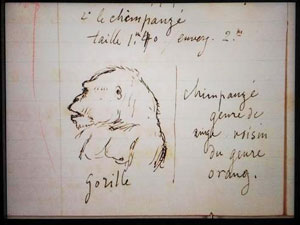 le chimpanzé
taille 1m40, envoy. 2m
Gorille
chimpanzé
genre de
singe voisin
du genre
orang.